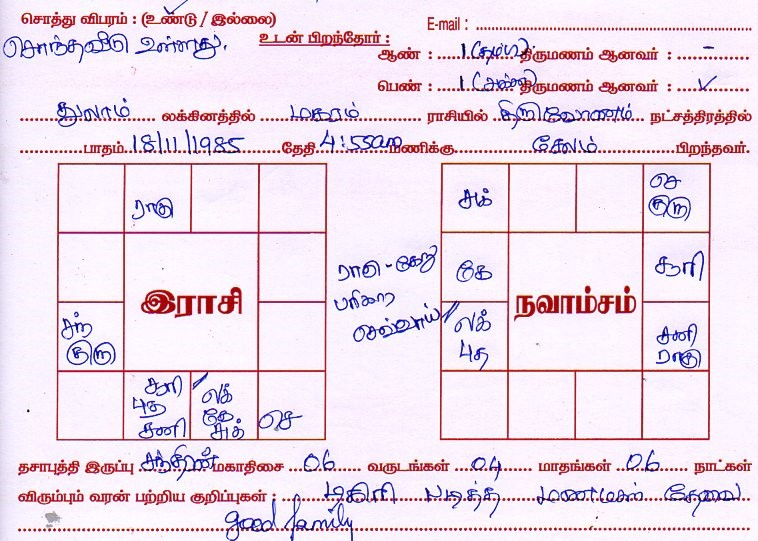 சொத்து விபரம் : (உண்டு / இல்லை)
E-mail :
சொந்தவீடு உள்ளது.
உடன் பிறந்தோர் :
ஆண் : 1 (தம்பி) திருமணம் ஆனவர் : –
பெண் : 1 (அக்கா) திருமணம் ஆனவர் : ✓
துலாம் லக்கினத்தில் மகரம் ராசியில் திருவோணம் நட்சத்திரத்தில்
பாதம் 18/11/1985 தேதி 4:55am மணிக்கு சேலம் பிறந்தவர்.
ராகு
இராசி
சந்
குரு
சூரி
புத
சனி
லக்
கே
சுக்
செ
ராகு - கேது
பரிகார
செவ்வாய்
சுக்
செ
குரு
கே
சூரி
நவாம்சம்
லக்
புத
சனி
ராகு
தசாபுத்தி இருப்பு சந்திரன் மகாதிசை 06 வருடங்கள் 04 மாதங்கள் 06 நாட்கள்
விரும்பும் வரன் பற்றிய குறிப்புகள் : டிகிரி படித்த மணமகன் தேவை
good family